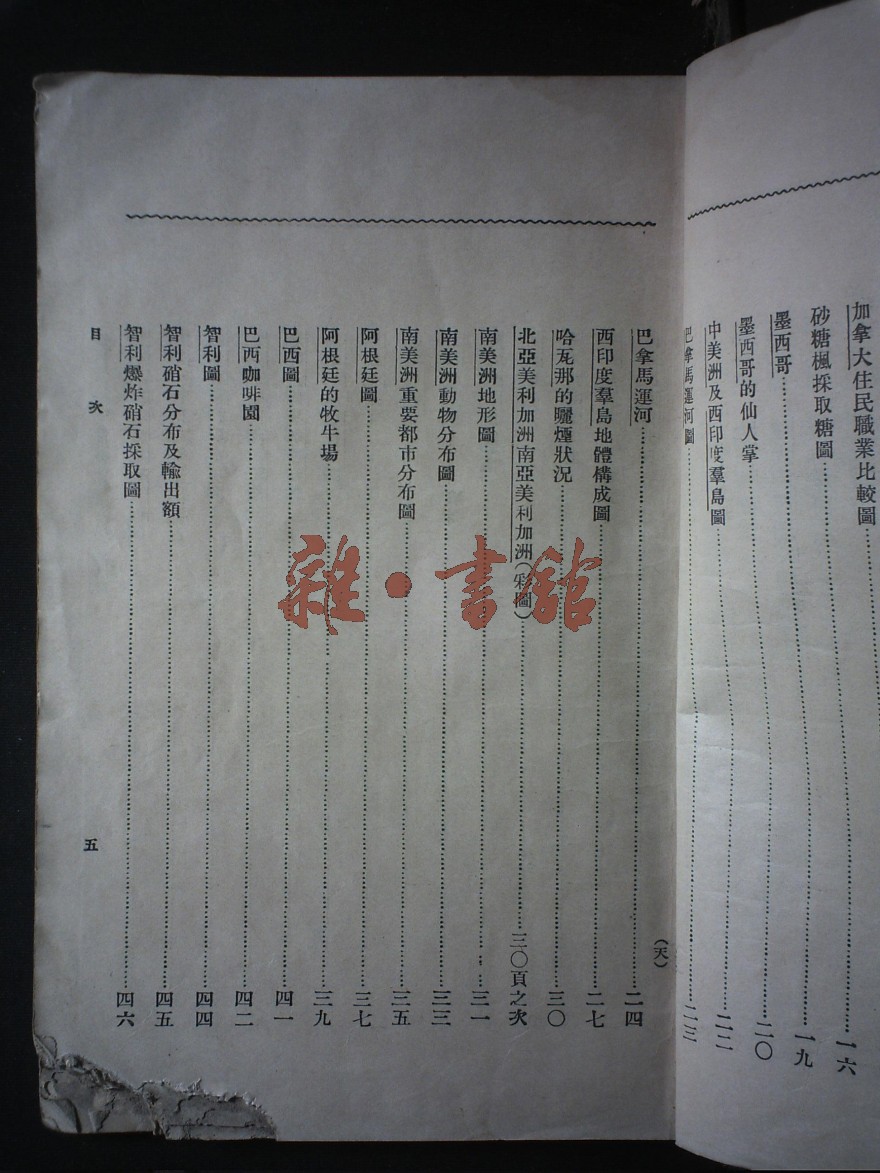 加拿大住民職業比較圖……一六
砂糖楓採取糖圖……一九
墨西哥……二〇
墨西哥的仙人掌……二二
中美洲及西印度羣島圖……二三
巴拿馬運河圖
(天)
巴拿馬運河……二四
西印度羣島地體構成圖……二七
哈瓦那的曬煙狀況……三〇
北亞美利加洲南亞美利加洲(彩圖)……三〇頁之次
南美洲地形圖……三一
南美洲動物分布圖……三三
南美洲重要都市分布圖……三五
阿根廷圖……三七
阿根廷的牧牛場……三九
巴西圖……四一
巴西咖啡園……四二
智利圖……四四
智利硝石分布及輸出額……四五
智利爆炸硝石採取圖……四六
目次
五
雜·書館